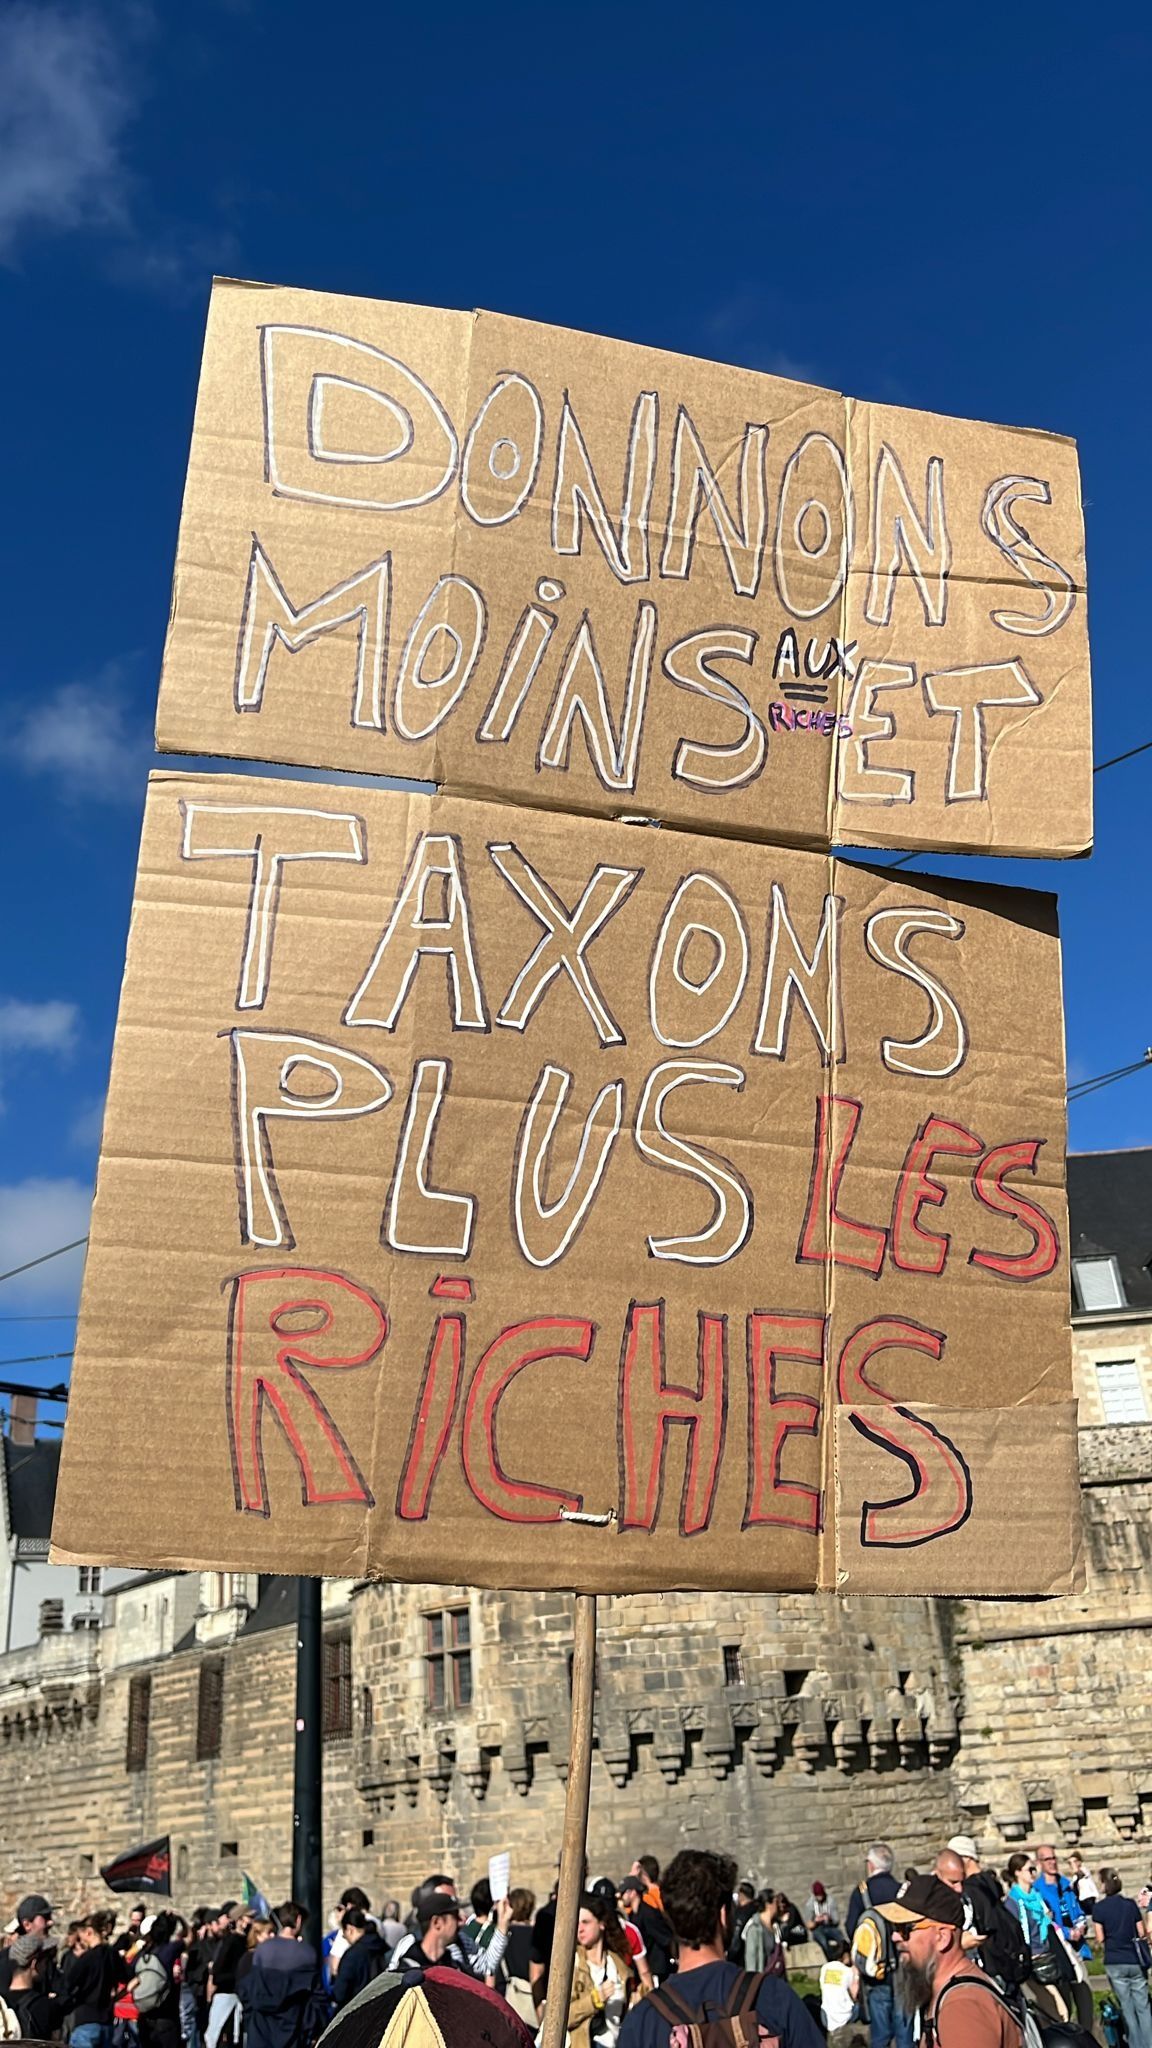 DONNONS
MOiNS AUX RICHES ET
TAXONS
PLUS LES
RiCHES